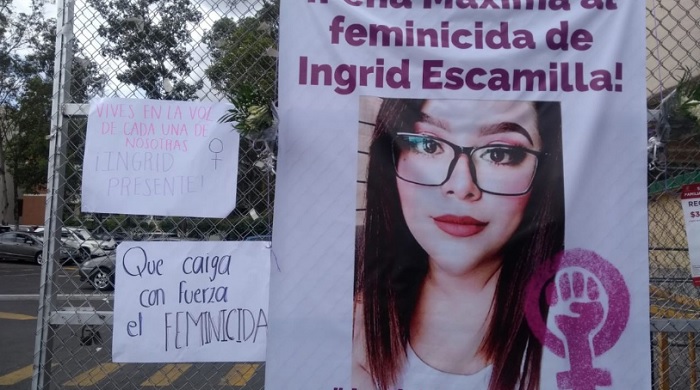 ¡Pena Máxima al
feminicida de
Ingrid Escamilla!
VIVES EN LA VOZ
DE CADA UNA DE
NOSOTRAS
¡INGRID
PRESENTE!
Que caiga
con fuerza
el FEMINICIDA